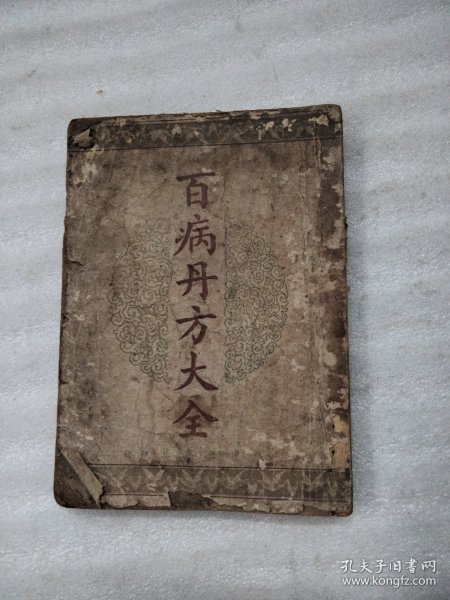 百病丹方大全
孔夫子旧书网
www.kongfz.com